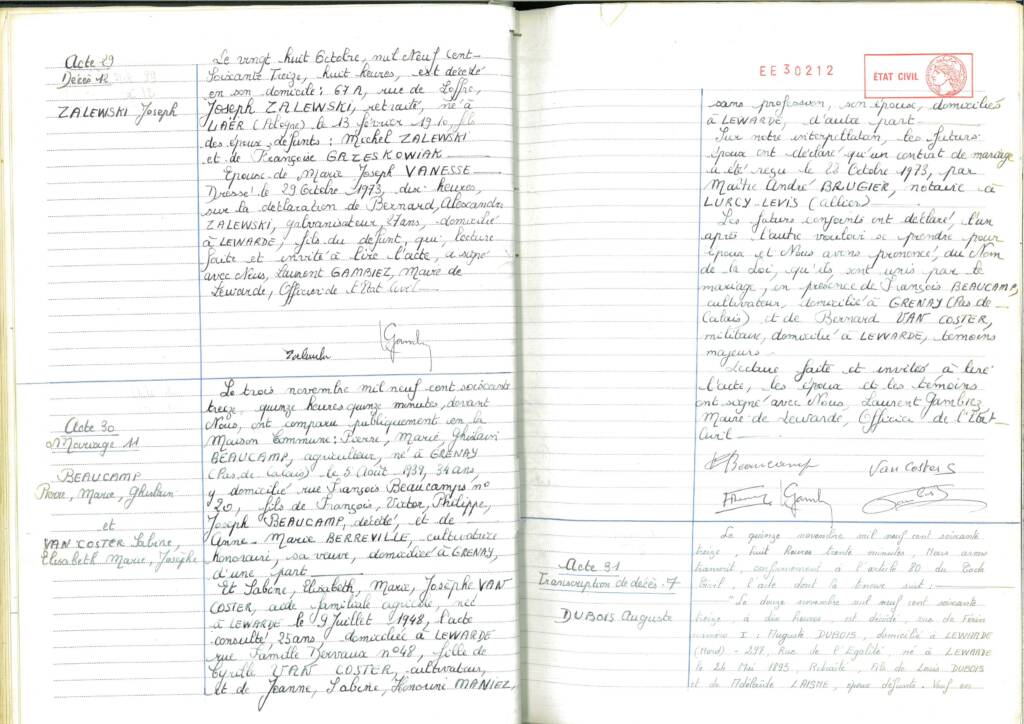 Acte 29
Décès 12
ZALEWSKI Joseph
Le vingt huit Octobre, mil Neuf Cent-
Soixante Treize, huit heures, est décédé
en son domicile: 67A, rue de Loffre,
Joseph ZALEWSKI, retraité, né à
LAER (Pologne) le 13 février 1910, fils
des époux défunts: Michel ZALEWSKI
et de Françoise GRZESKOWIAK
Epouse de Marie Joseph VANESSE
Dressé le 29 Octobre 1973, dix heures,
sur la déclaration de Bernard, Alexandre
ZALEWSKI, galvanisateur, 27ans, domicilié
à LEWARDE, fils du défunt, qui, lecture
faite et invité à lire l'acte, a signé
avec Nous, Laurent GAMBIEZ, Maire de
Lewarde, Officier de l'Etat Civil
Acte 30
Mariage 11
BEAUCAMP
Pierre, Marie, Ghislain
et
VAN COSTER Sabine,
Elisabeth Marie, Josèphe
Le trois novembre mil neuf cent soixante
treize, quinze heures quinze minutes, devant
Nous, ont comparu publiquement en la
Maison Commune: Pierre, Marie, Ghislain
BEAUCAMP, agriculteur, né à GRENAY
(Pas de Calais) le 5 Août 1939, 34 ans,
y domicilié rue François Beaucamps no
20, fils de François, Victor, Philippe,
Joseph BEAUCAMP, décédé, et de
Anne-Marie BERREVILLE, cultivatrice
honoraire, sa veuve, domiciliée à GRENAY,
d'une part
Et Sabine, Elisabeth, Marie, Josèphe VAN
COSTER, aide familiale agricole, née
à LEWARDE le 9 Juillet 1948, l'acte
consulté, 25ans, domiciliée à LEWARDE
rue Famille Dervaux no48, fille de
Cyrille VAN COSTER, cultivateur,
et de Jeanne, Sabine, Honorine MANIEZ,
EE30212
ETAT CIVIL
sans profession, son épouse, domiciliés
à LEWARDE, d'autre part
Sur notre interpellation, les futurs
époux ont déclaré qu'un contrat de mariage
a été reçu le 23 Octobre 1973, par
Maître André BRUGIER, notaire à
LURCY-LEVIS (Allier)
Les futurs conjoints ont déclaré, l'un
après l'autre vouloir se prendre pour
époux et Nous avons prononcé, au Nom
de la Loi, qu'ils sont unis par le
mariage, en présence de François BEAUCAMP,
cultivateur, domicilié à GRENAY (Pas de
Calais) et de Bernard VAN COSTER,
militaire, domicilié à LEWARDE, témoins
majeurs
Lecture faite et invités à lire
l'acte, les époux et les témoins
ont signé avec Nous, Laurent Gambiez
Maire de Lewarde, Officier de l'Etat
Civil
Beaucamp
Van Coster S
Acte 31
Transcription de décès 7
DUBOIS Auguste
Le quinze novembre mil neuf cent soixante
treize, huit heures trente minutes, Nous avons
transcrit, conformément à l'article 80 du Code
Civil, l'acte dont la teneur suit:
"Le douze novembre mil neuf cent soixante
treize, à dix heures, est décédé, rue de Férin
numéro 1: Auguste DUBOIS, domicilié à LEWARDE
(Nord) - 298, Rue de l'Egalité, né à LEWARDE
le 24 Mai 1893, Retraité, Fils de Louis DUBOIS
et de Adélaïde LAISNE, époux défunts. Veuf en